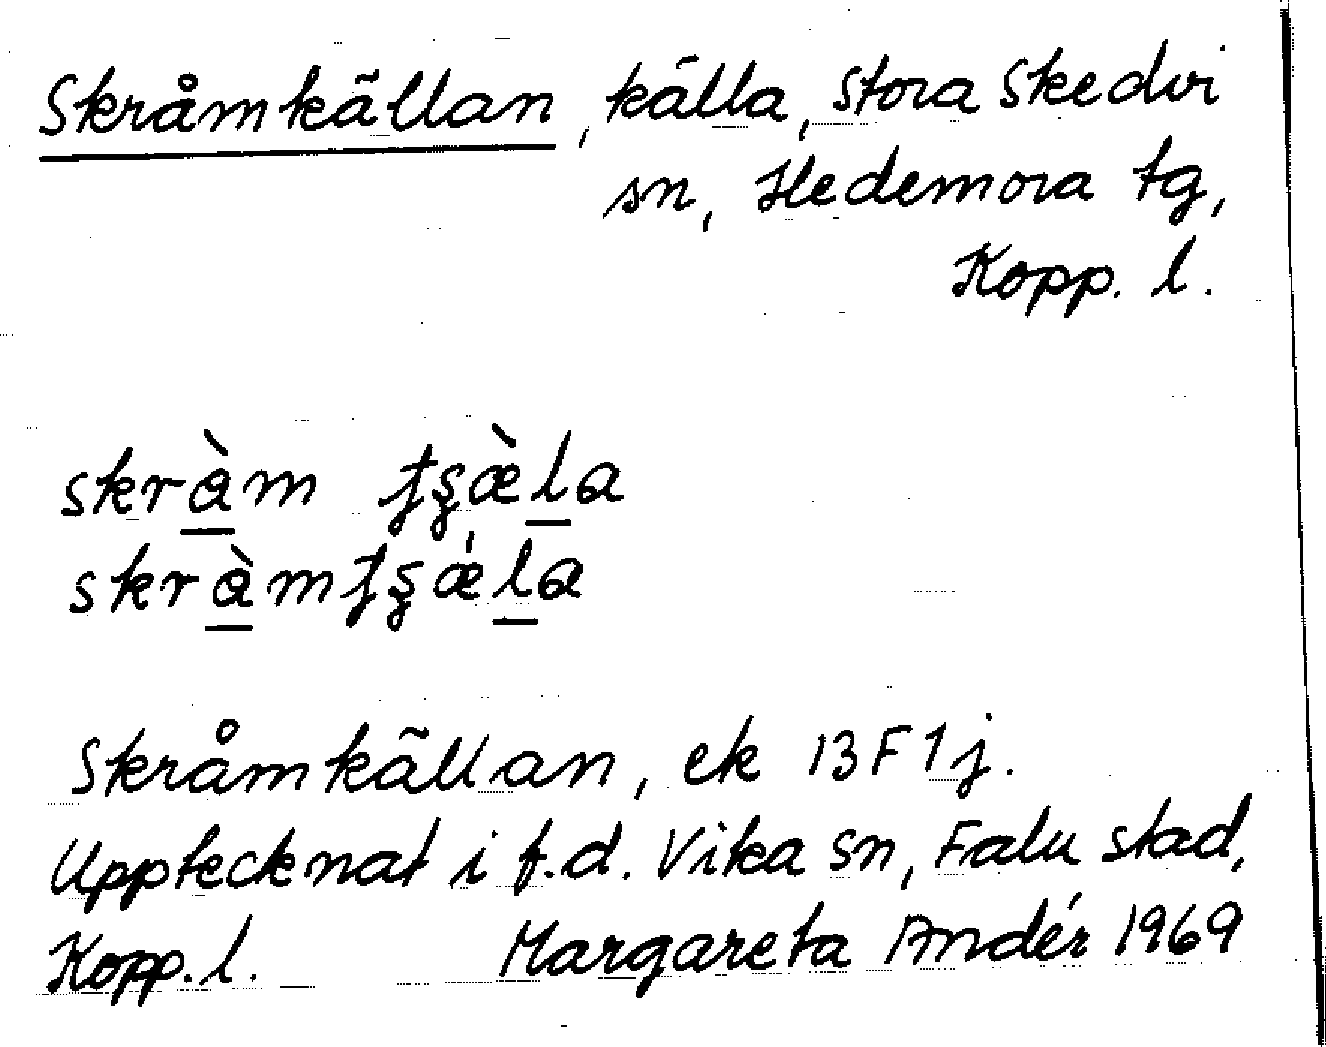 Skråmkällan, källa, Stora Skedvi
sn, Hedemora tg,
Kopp. l.
skràm ʈʂæ̀la
skràmʈʂǽla
Skråmkällan, ek 13F1j.
Upptecknat i f.d. Vika sn, Falu stad,
Kopp. l. Margareta Andér 1969